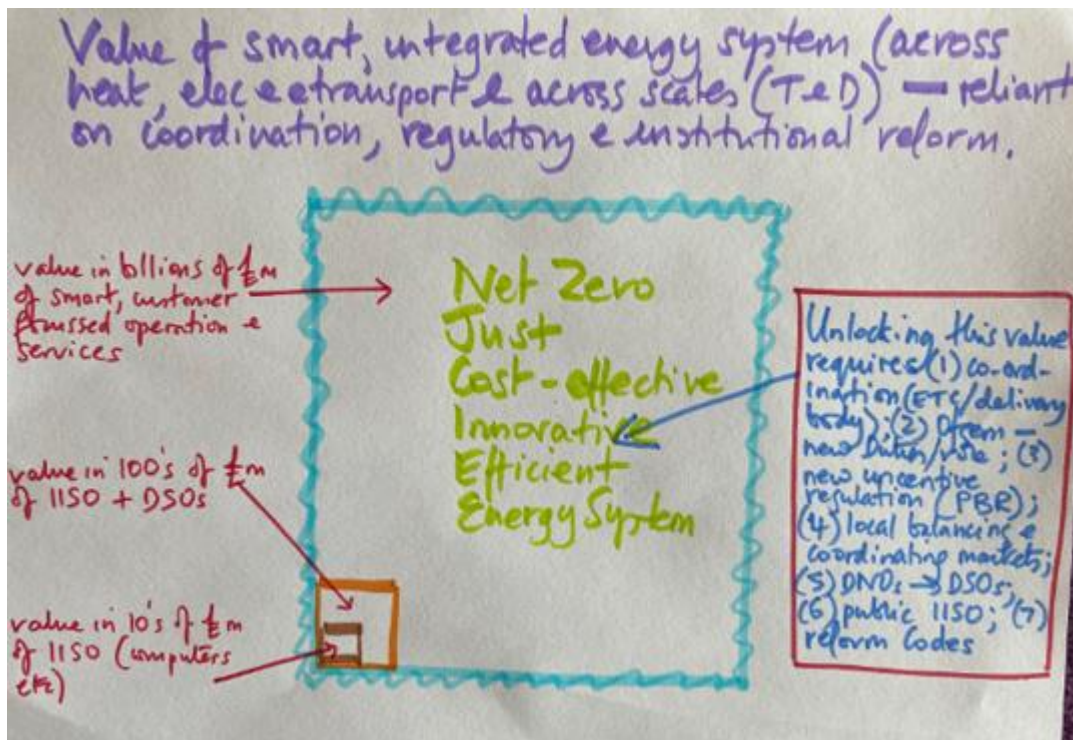 Value of smart, integrated energy system (across
heat, elec e etransport e across scales (T e D) — reliant
on coordination, regulatory e institutional reform.
value in billions of £m
of smart, customer
focussed operation e
services
value in 100's of £m
of IISO + DSOs
value in 10's of £m
of IISO (computers
etc)
Net Zero
Just
Cost-effective
Innovative
Efficient
Energy System
Unlocking this value
requires (1) co-ord-
ination (ETC/delivery
body); (2) Ofgem –
new Duties/role; (3)
new incentive
regulation (PBR);
(4) local balancing e
coordinating markets;
(5) DNOs → DSOs;
(6) public IISO; (7)
reform Codes